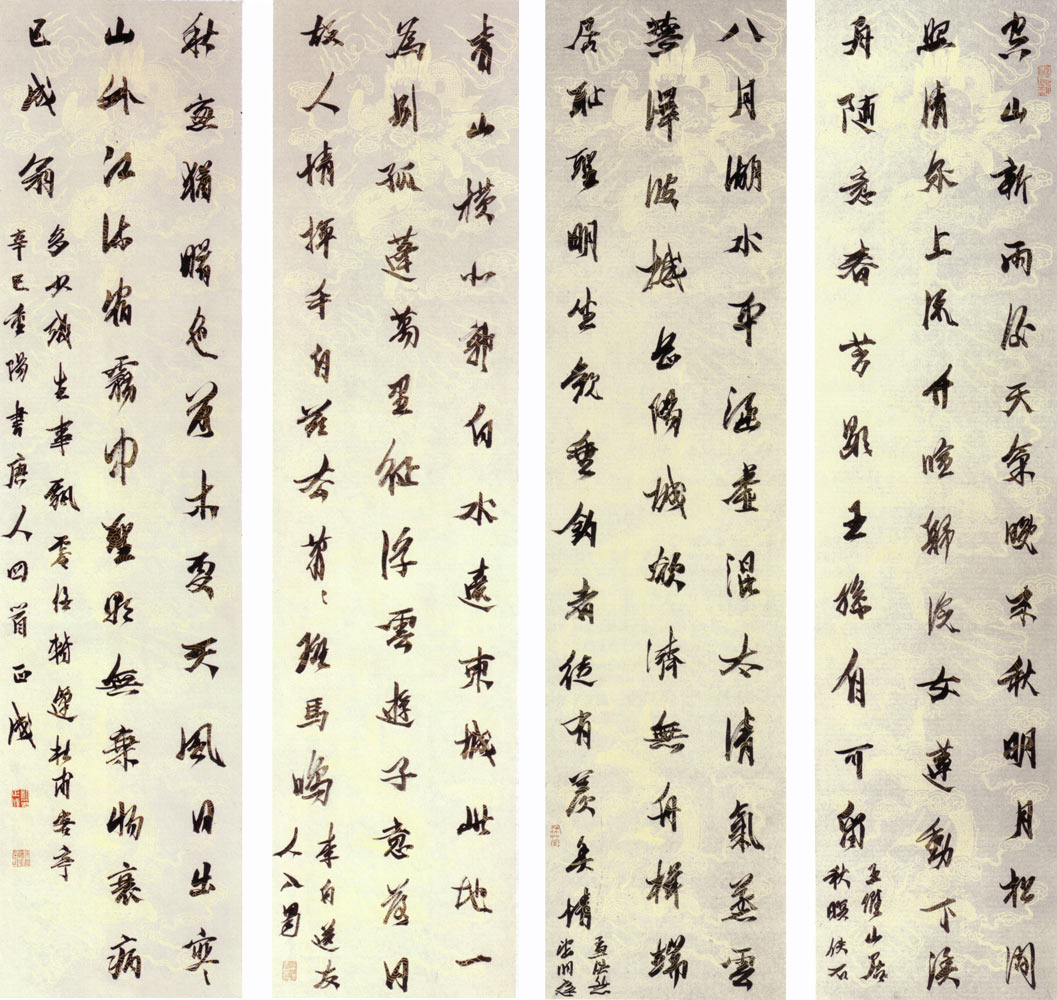 空山新雨後天氣晚來秋明月松間
照清泉上流竹喧歸浣女蓮動下漁
舟隨意春芳歇王孫自可留
王維山居
秋暝佚石
八月湖水平涵虛混太清氣蒸雲
夢澤波撼岳陽城欲濟無舟楫端
居恥聖明坐觀垂釣者徒有羨魚情
孟浩然
望洞庭
青山橫北郭白水遶東城此地一
為別孤蓬萬里征浮雲遊子意落日
故人情揮手自茲去蕭〻班馬鳴
李白送友
人入蜀
秋窗猶曙色落木更天風日出寒
山外江流宿霧中聖朝無棄物衰病
已成翁
多少殘生事飄零任轉蓬杜甫客亭
辛巳重陽書唐人四首正成